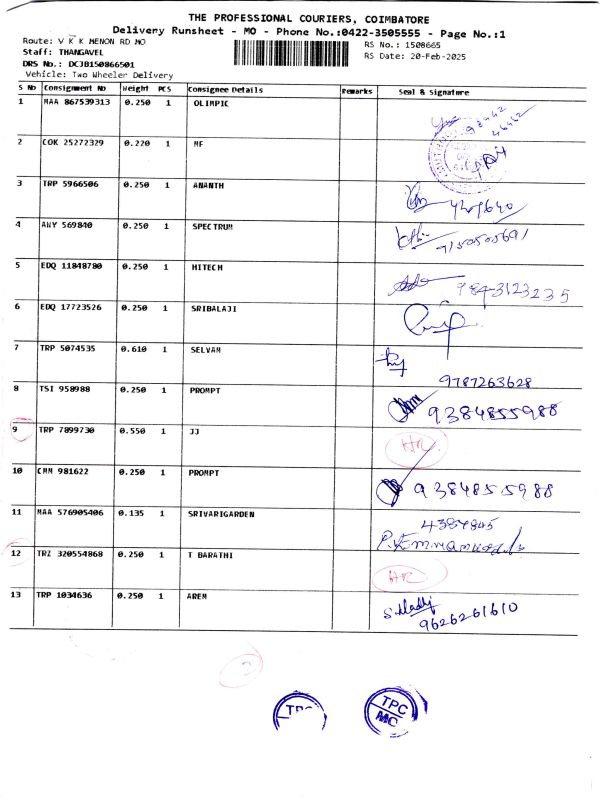 THE PROFESSIONAL COURIERS, COIMBATORE
Delivery Runsheet - MO - Phone No.:0422-3505555 - Page No.:1
Route: V K K MENON RD MO
RS No.: 1508665
Staff: THANGAVEL
RS Date: 20-Feb-2025
DRS No.: DCJB150866501
Vehicle: Two Wheeler Delivery
S No Consignment No Weight PCS Consignee Details Remarks Seal & Signature
1 MAA 867539313 0.250 1 OLIMPIC
2 COK 25272329 0.220 1 MF
3 TRP 5966506 0.250 1 ANANTH
4 ANY 569840 0.250 1 SPECTRUM
5 EDQ 11848780 0.250 1 HITECH 9843123235
6 EDQ 17723526 0.250 1 SRIBALAJI
7 TRP 5074535 0.610 1 SELVAM
9787263628
8 TSI 958988 0.250 1 PROMPT 9384855988
9 TRP 7899730 0.550 1 JJ
10 CMM 981622 0.250 1 PROMPT 9384855988
11 MAA 576905406 0.135 1 SRIVARIGARDEN
12 TRZ 320554868 0.250 1 T BARATHI
13 TRP 1034636 0.250 1 AREM
9626261610
2
TPC
TPC
MO